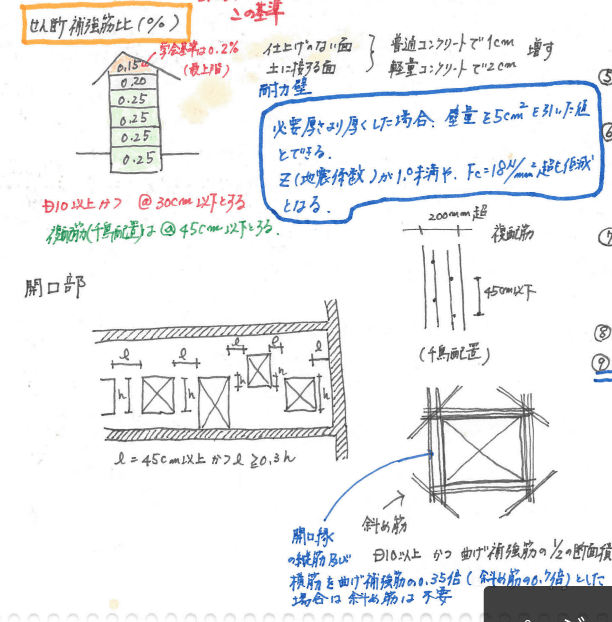 この基準
せん断補強筋比(%)
学会基準は0.2%
(最上階)
0.15
0.20
0.25
0.25
0.25
0.25
仕上げのない面
土に接する面
普通コンクリートで1cm
軽量コンクリートで2cm
増す
耐力壁
必要厚さより厚くした場合、壁量を5cm²を引いた値
とできる。
Z(地震係数)が1.0未満や、Fc=18N/mm²超も低減
とはる。
D10以上かつ @30cm以下とする
複配筋(千鳥配置)は@45cm以下とする.
200mm超
複配筋
45cm以下
(千鳥配置)
開口部
l
l
l
l
l
h
h
h
h
h
l=45cm以上かつl≧0.3h
斜め筋
D10以上 かつ 曲げ補強筋の1/2の断面積
開口縁
の縦筋及び
横筋を曲げ補強筋の0.35倍(斜め筋の0.7倍)とした
場合は斜め筋は不要
⑤
⑥
⑦
⑧
⑨